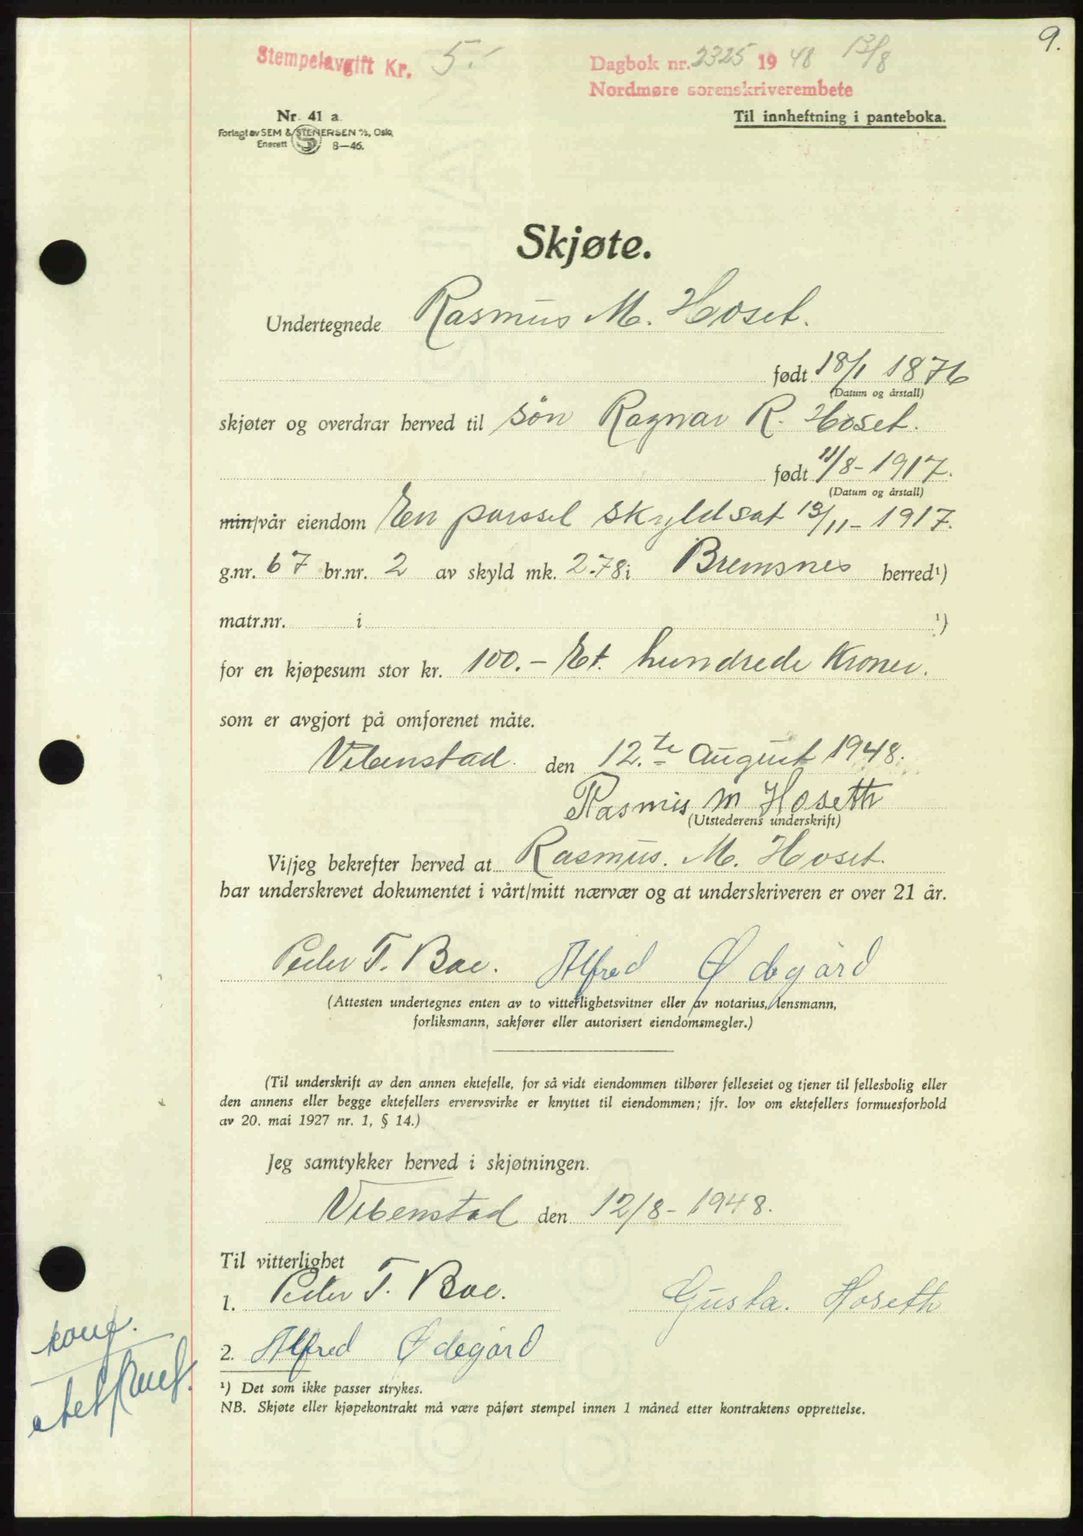 9.
Stempelavgift Kr. 5.-
Dagbok nr. 2325 1948 13/8
Nordmøre sorenskriverembete
Nr. 41 a
Forlagt av SEM & STENERSEN A/S, Oslo,
Enerett S 8—46.
Til innheftning i panteboka.
Skjøte.
Undertegnede Rasmus M. Hoset.
født 18/1 1876
(Datum og årstall)
skjøter og overdrar herved til søn Ragnar R. Hoset.
født 11/8-1917.
(Datum og årstall)
min/vår eiendom En parsel skyldsat 13/11-1917.
g.nr. 67 br.nr. 2 av skyld mk. 2.78 i Bremsnes herred¹)
matr.nr. i ¹)
for en kjøpesum stor kr. 100.- Et. hundrede Kroner.
som er avgjort på omforenet måte.
Vebenstad. den 12.te August 1948.
Rasmus M Hoseth
(Utstederens underskrift)
Vi/jeg bekrefter herved at Rasmus. M. Hoset.
har underskrevet dokumentet i vårt/mitt nærvær og at underskriveren er over 21 år.
Peder T. Boe. Alfred Ødegård
(Attesten undertegnes enten av to vitterlighetsvitner eller av notarius, lensmann,
forliksmann, sakfører eller autorisert eiendomsmegler.)
(Til underskrift av den annen ektefelle, for så vidt eiendommen tilhører felleseiet og tjener til fellesbolig eller
den annens eller begge ektefellers ervervsvirke er knyttet til eiendommen; jfr. lov om ektefellers formuesforhold
av 20. mai 1927 nr. 1, § 14.)
Jeg samtykker herved i skjøtningen.
Vebenstad den 12/8-1948.
Til vitterlighet
1. Peder T. Boe. Gusta. Hoseth
2. Alfred Ødegård
konf.
¹) Det som ikke passer strykes.
NB. Skjøte eller kjøpekontrakt må være påført stempel innen 1 måned etter kontraktens opprettelse.